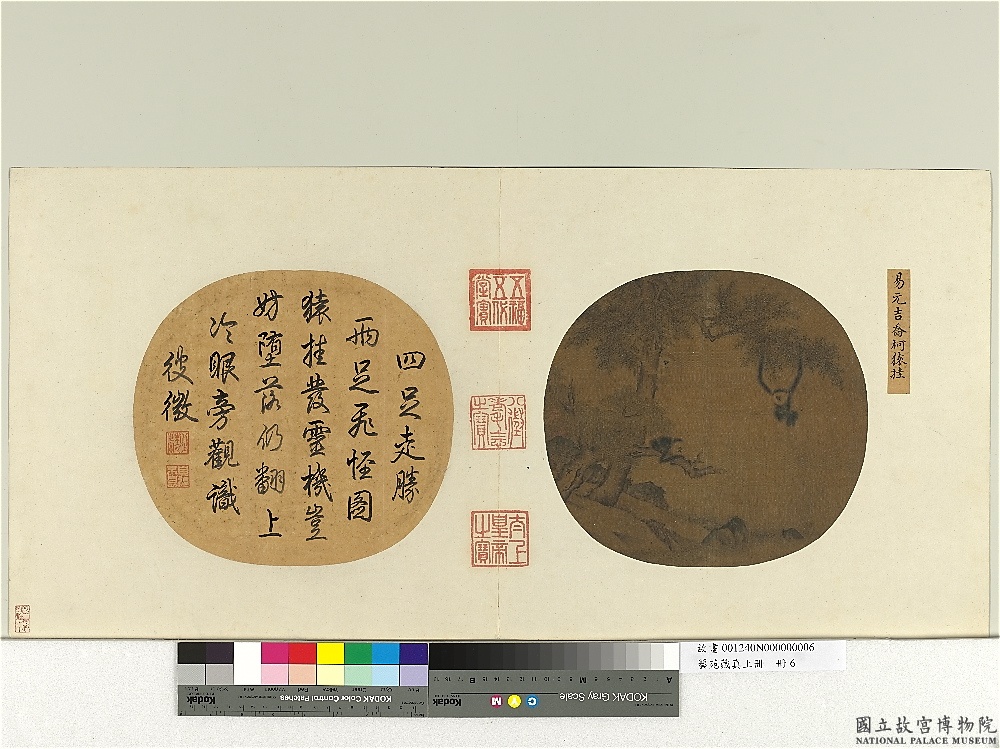 易元吉喬柯猿挂
四足走勝
兩足飛怪圖
猿挂發靈機豈
妨墮落仍翻上
冷眼旁觀識
從微
五福五代堂寶
八徵耄念之寶
太上皇帝之寶
故畫001240N000000006
藝苑藏真上冊 冊6
Kodak
KODAK Color Control Patches
Kodak
KODAK Gray Scale
C
Y
M
國立故宮博物院
NATIONAL PALACE MUSEUM